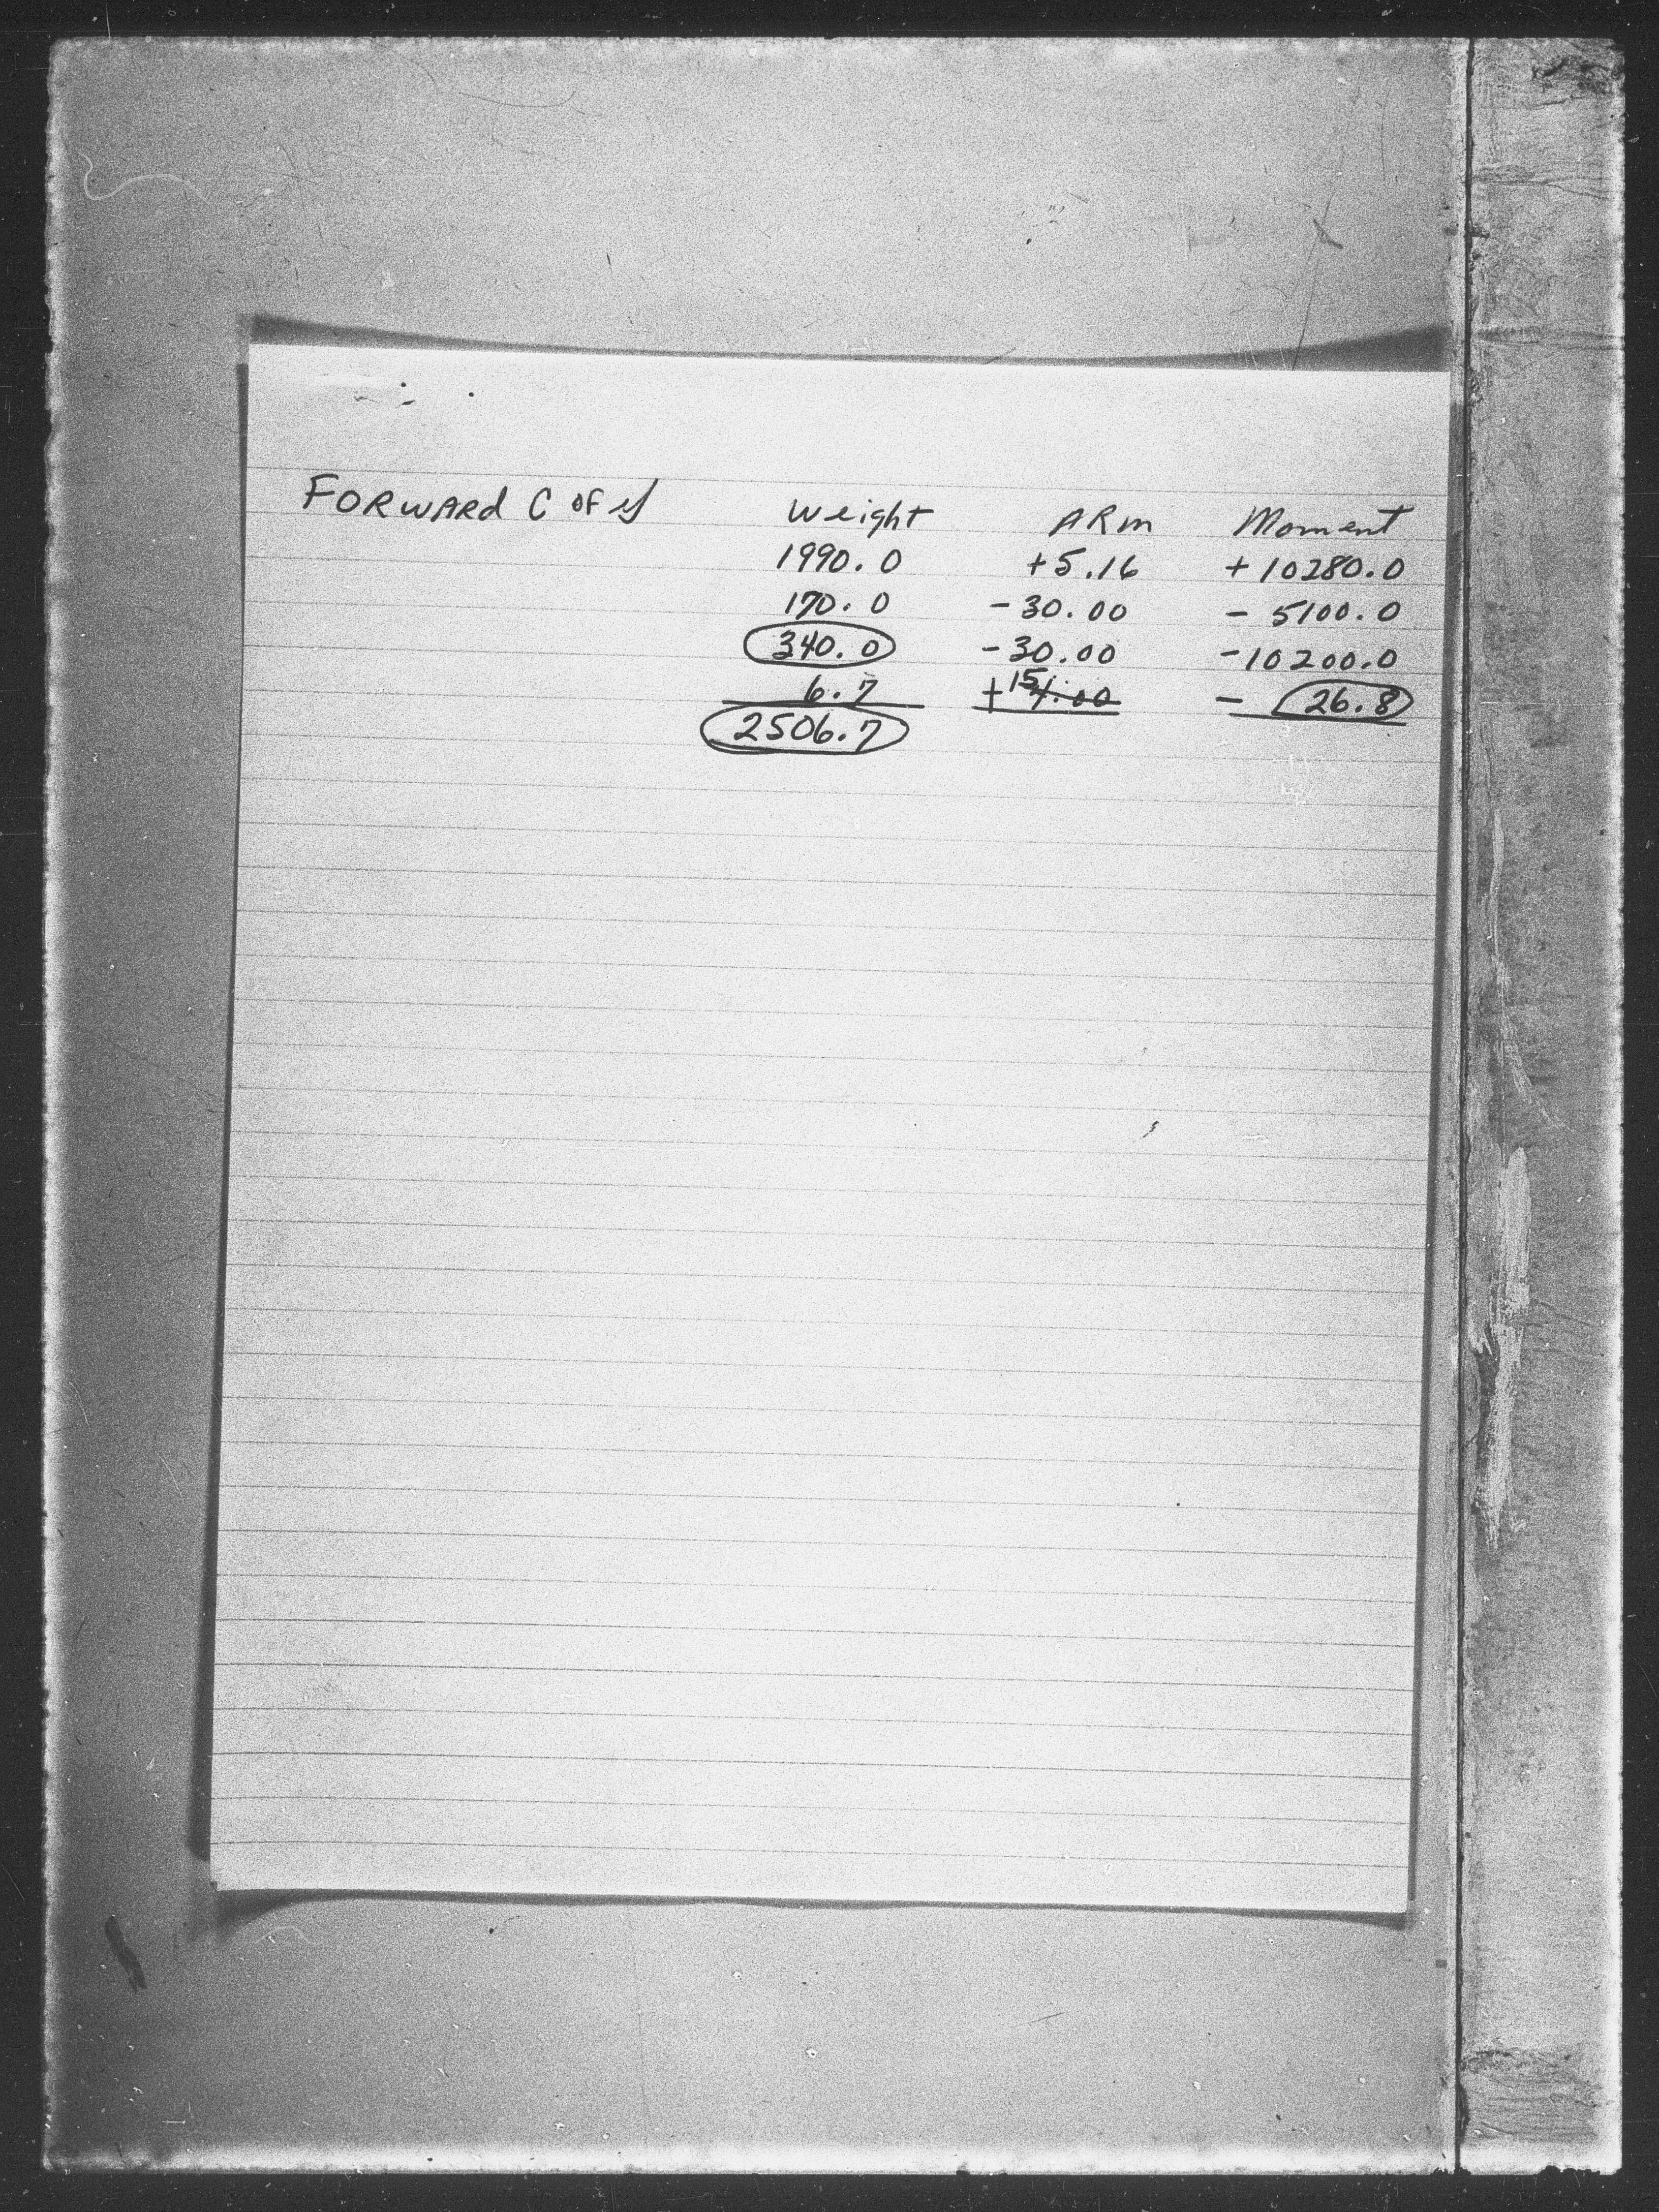 FORWARD C OF G Weight ARm Moment
1990.0 +5.16 +10280.0
170.0 -30.00 - 5100.0
340.0 -30.00 -10200.0
6.7 +15 4.00 - 26.8
2506.7